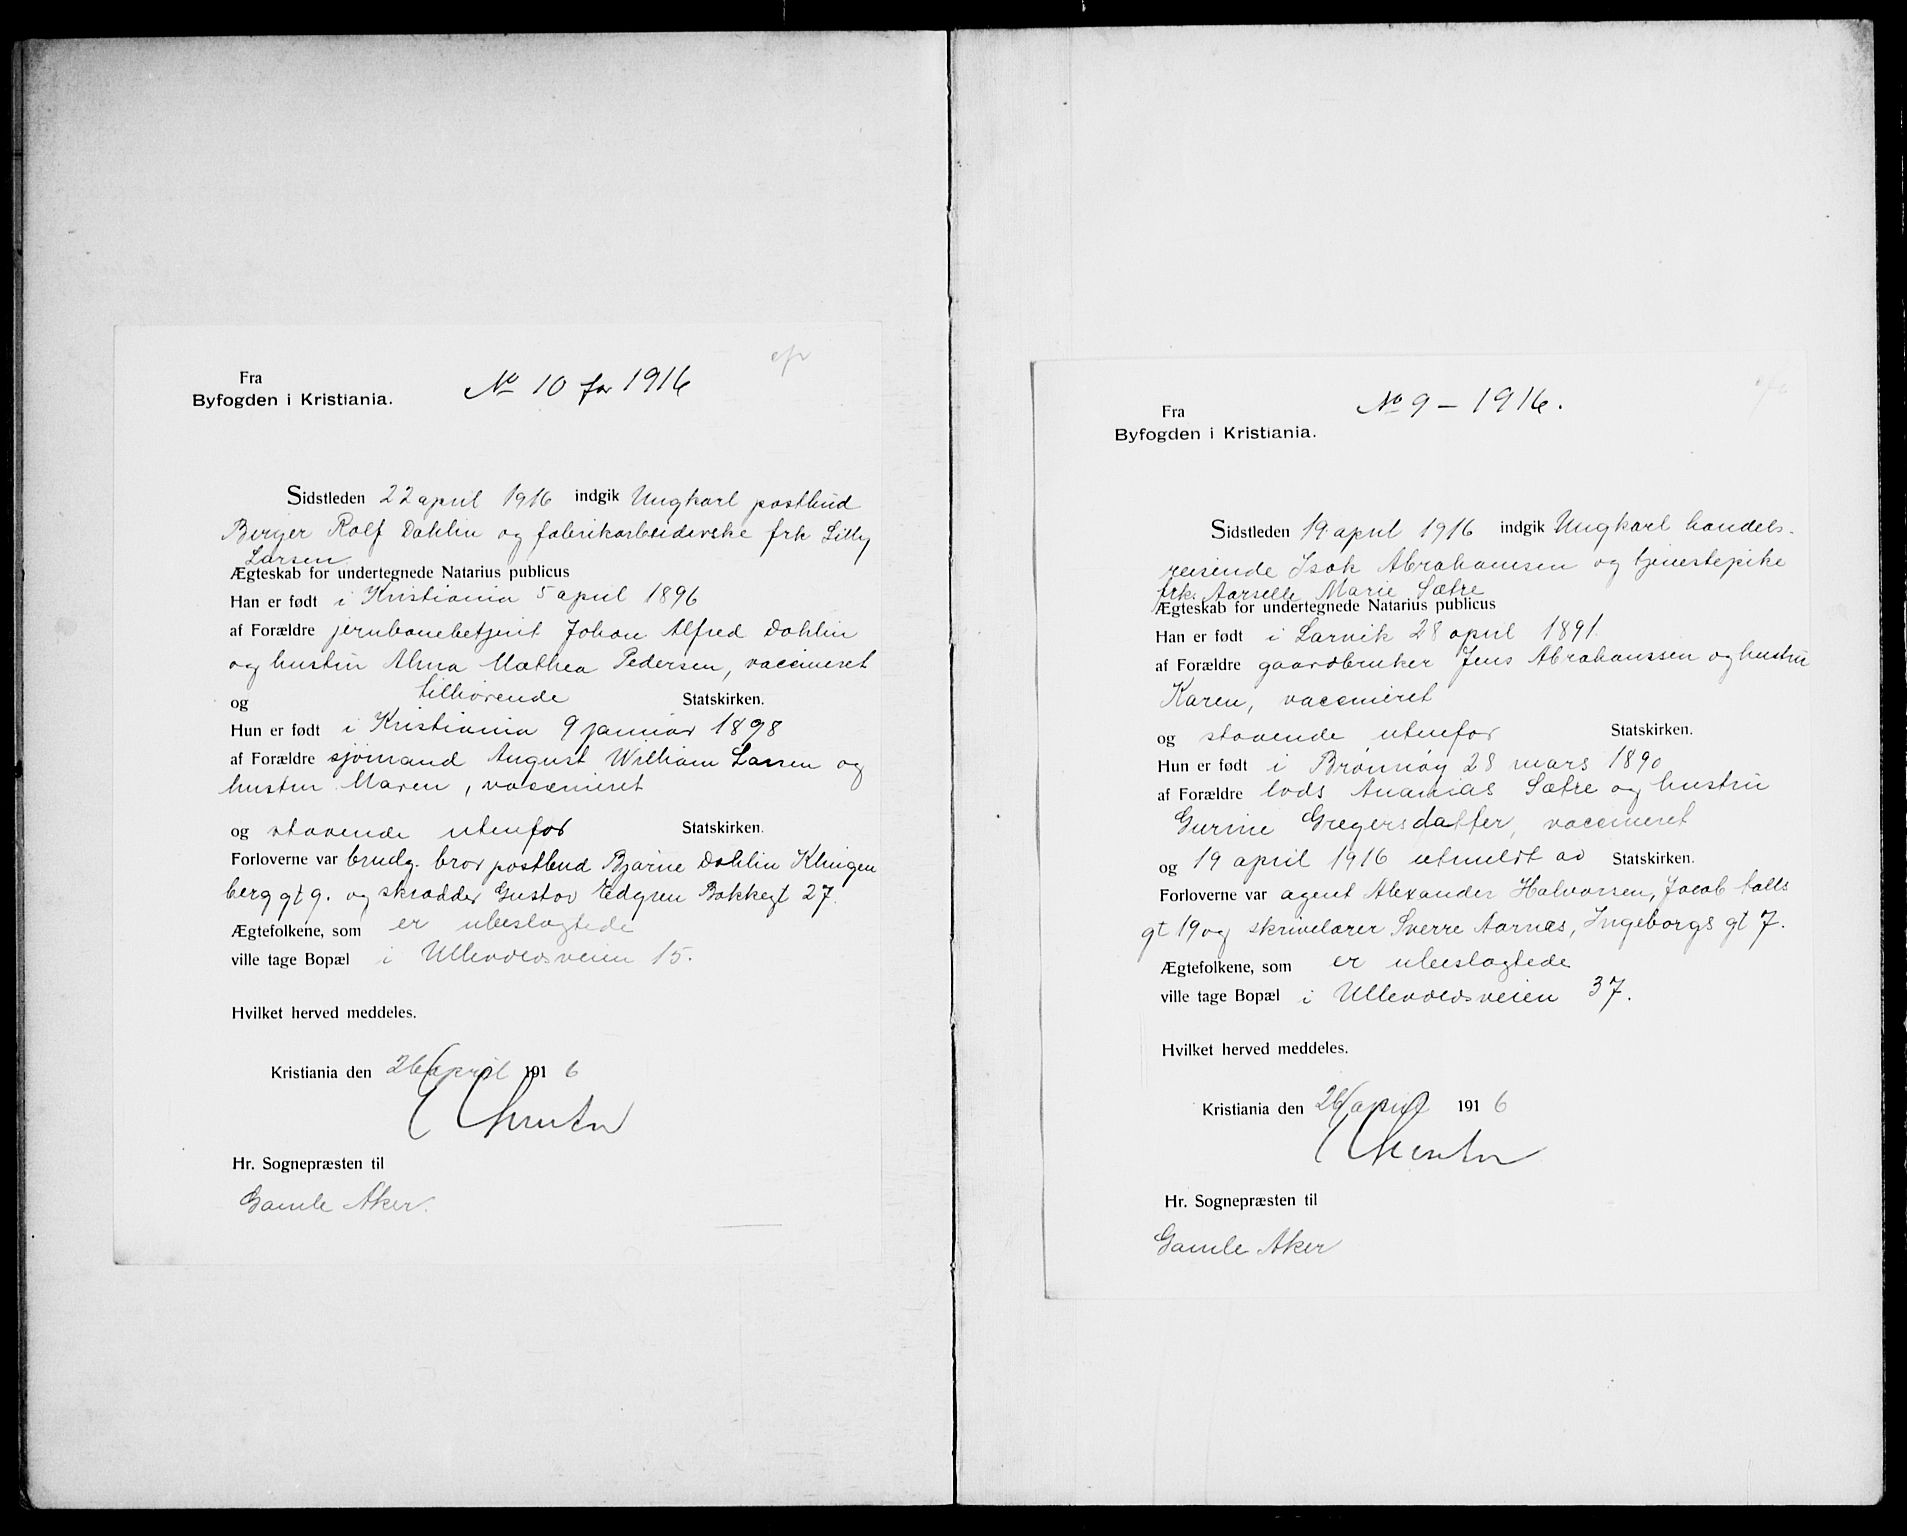 Fra
Byfogden i Kristiania.
No 10 for 1916
Sidstleden 22 april 1916 indgik Ungkarl postbud
Berger Rolf Dahlin og fabrikarbeiderske frk Lilly
Larsen
Ægteskab for undertegnede Natarius publicus
Han er født i Kristiania 5 april 1896
af Forældre jernbanebetjent Johan Alfred Dahlin
og hustru Alma Mathea Pedersen, vaccineret
og tilhørende Statskirken.
Hun er født i Kristiania 9 januar 1898
af Forældre sjømand August William Larsen og
hustru Maren, vaccineret
og staaende utenfor Statskirken.
Forloverne var brudg. bror postbud Bjarne Dahlin Klingen
berg gt 9. og skrædder Gustav Edgren Bakkegt 27.
Ægtefolkene, som er ubeslægtede
ville tage Bopæl i Ullevoldsveien 15.
Hvilket herved meddeles.
Kristiania den 26/april 1916
Hr. Sognepræsten til
Gamle Aker.
Fra
Byfogden i Kristiania.
No 9 - 1916.
Sidstleden 19 april 1916 indgik Ungkarl handels-
reisende Isak Abrahamsen og tjenestepike
frk. Marie Sætre
Ægteskab for undertegnede Natarius publicus
Han er født i Larvik 28 april 1891
af Forældre gaardbruker Jens Abrahamssen og hustru
Karen, vaccineret
og staaende utenfor Statskirken.
Hun er født i Brønnøy 28 mars 1890
af Forældre lods Ananias Sætre og hustru
Gurine Gregersdatter, vaccineret
og 19 april 1916 utmeldt av Statskirken.
Forloverne var agent Alexander Halvorsen, Jacob Aalls
gt 19 og skrivelærer Sverre Aarnæs, Ingeborgs gt 7.
Ægtefolkene, som er ubeslægtede
ville tage Bopæl i Ullevoldsveien 37.
Hvilket herved meddeles.
Kristiania den 26/april 1916
Hr. Sognepræsten til
Gamle Aker